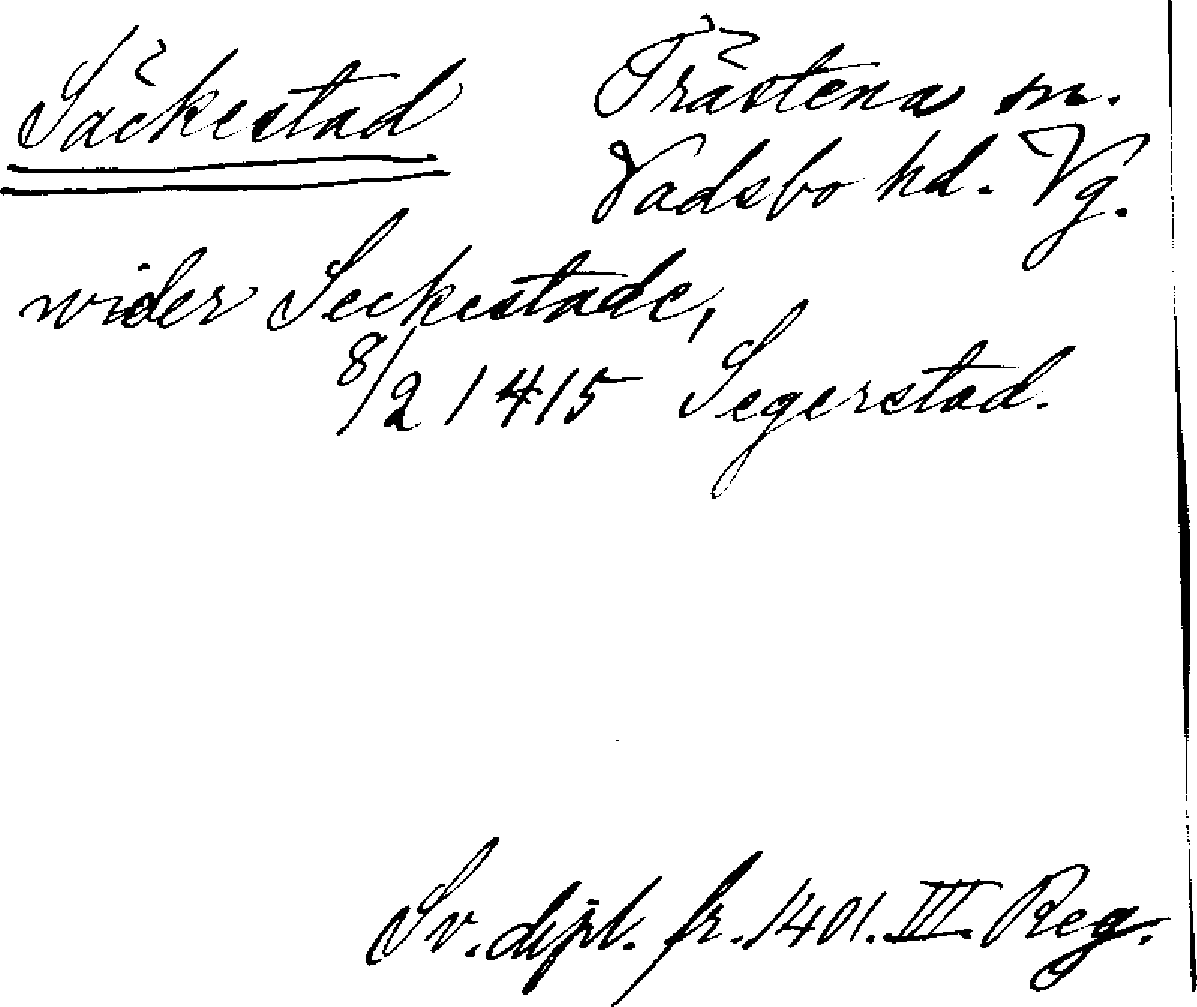 Säckestad
Trästena sn.
Vadsbo hd. Vg.
wider Seckestade,
8/2 1415 Segerstad.
Sv. dipl. fr. 1401. III. Reg.